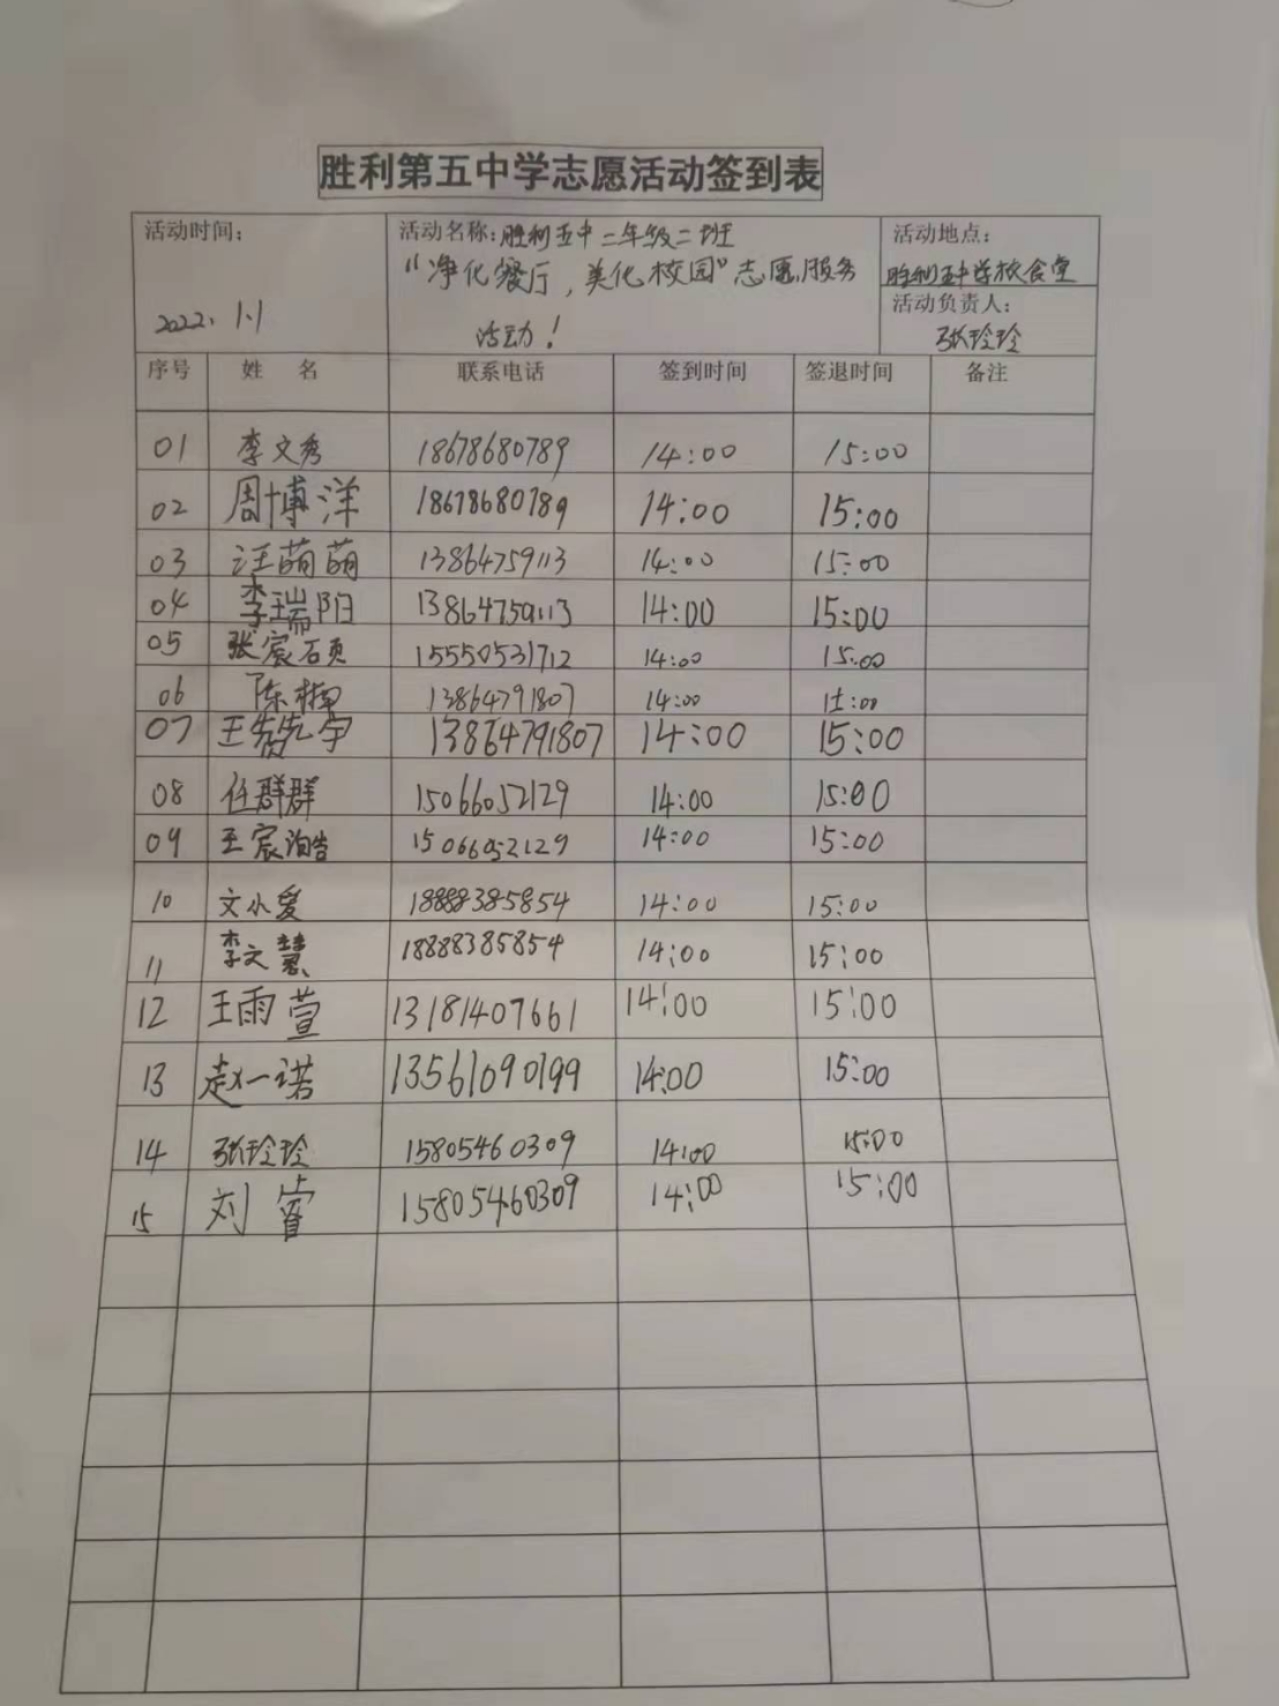 胜利第五中学志愿活动签到表
活动时间: 2022. 1.1
活动名称: 胜利五中二年级二班
“净化餐厅, 美化校园”志愿服务
活动!
活动地点:
胜利五中学校食堂
活动负责人:
张玲玲
序号 姓 名 联系电话 签到时间 签退时间 备注
01 李文秀 18678680789 14:00 15:00
02 周博洋 18678680789 14:00 15:00
03 汪萌萌 13864759113 14:00 15:00
04 李瑞阳 13864759113 14:00 15:00
05 张宸硕 15550531712 14:00 15:00
06 陈楠 13864791807 14:00 15:00
07 王赞宇 13864791807 14:00 15:00
08 任群群 15066052129 14:00 15:00
09 王宸浩 15066052129 14:00 15:00
10 文小爱 18888385854 14:00 15:00
11 李文慧 18888385854 14:00 15:00
12 王雨萱 13181407661 14:00 15:00
13 赵一诺 13561090199 14:00 15:00
14 张玲玲 15805460309 14:00 15:00
15 刘睿 15805460309 14:00 15:00